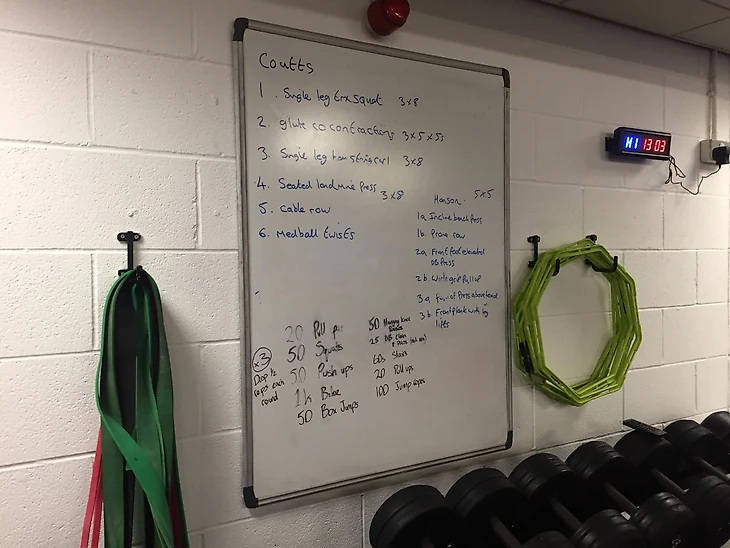 Coutts
1. Single leg trx squat 3x8
2. glute cocontractions 3x5x5s
3. Single leg hamstring curl 3x8
4. Seated landmine press 3x8
5. Cable row
6. Medball twists
Hanson 5x5
1a Incline bench press
1b. Prone row
2a. Front foot elevated
DB press
2b. Wide grip pull up
3a
3b Front plank with leg
lifts
x3
Drop 1/2
reps each
round
20 Pull
50 Squats
50 Push ups
1k Bike
50 Box Jumps
50 Hanging knee
Raises
25 DB Clean
& Press
60s Stairs
20 Pull ups
100 Jump ropes
H1 13 03